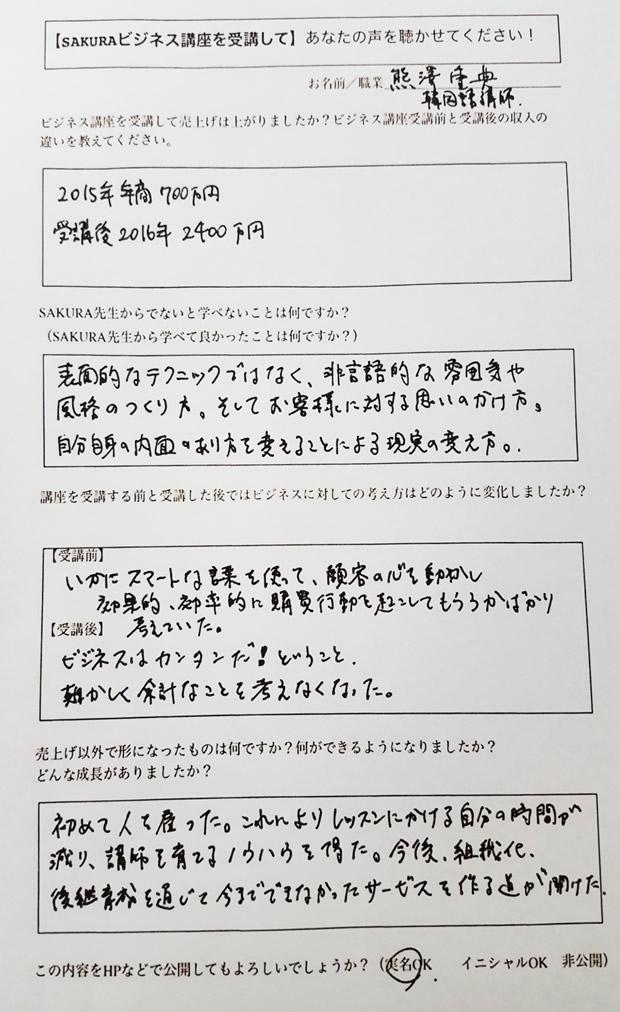 【SAKURAビジネス講座を受講して】あなたの声を聴かせてください!
お名前/職業 熊澤 典
韓国語講師.
ビジネス講座を受講して売上げは上がりましたか?ビジネス講座受講前と受講後の収入の
違いを教えてください。
2015年 年商 700万円
受講後 2016年 2400万円
SAKURA先生からでないと学べないことは何ですか?
(SAKURA先生から学べて良かったことは何ですか?)
表面的なテクニックではなく、非言語的な雰囲気や
風格のつくり方。そしてお客様に対する思いのかけ方。
自分自身の内面のあり方を変えることによる現実の変え方。.
講座を受講する前と受講した後ではビジネスに対しての考え方はどのように変化しましたか?
【受講前】
いかにスマートな言葉を使って、顧客の心を動かし
効果的、効率的に購買行動を起こしてもらうかばかり
【受講後】 考えていた。
ビジネスはカンタンだ!ということ.
難かしく余計なことを考えなくなった。
売上げ以外で形になったものは何ですか?何ができるようになりましたか?
どんな成長がありましたか?
初めて人を雇った。これによりレッスンにかける自分の時間が
減り、講師を育てるノウハウを得た。今後、組織化、
後継育成を通じて今までできなかったサービスを作る道が開けた.
この内容をHPなどで公開してもよろしいでしょうか?(実名OK. イニシャルOK 非公開)